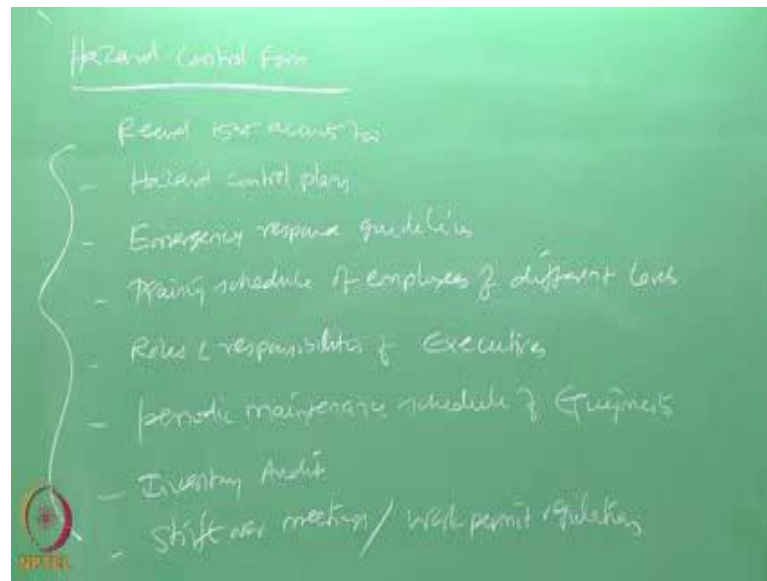 Hazard Control Form
Record
- Hazard control plans
- Emergency response guidelines
- Training schedule of employees of different levels
- Roles & responsibilities of Executives
- periodic maintenance schedule of Equipments
- Inventory Audit
- Shift over meetings / work permit regulations
NPTEL